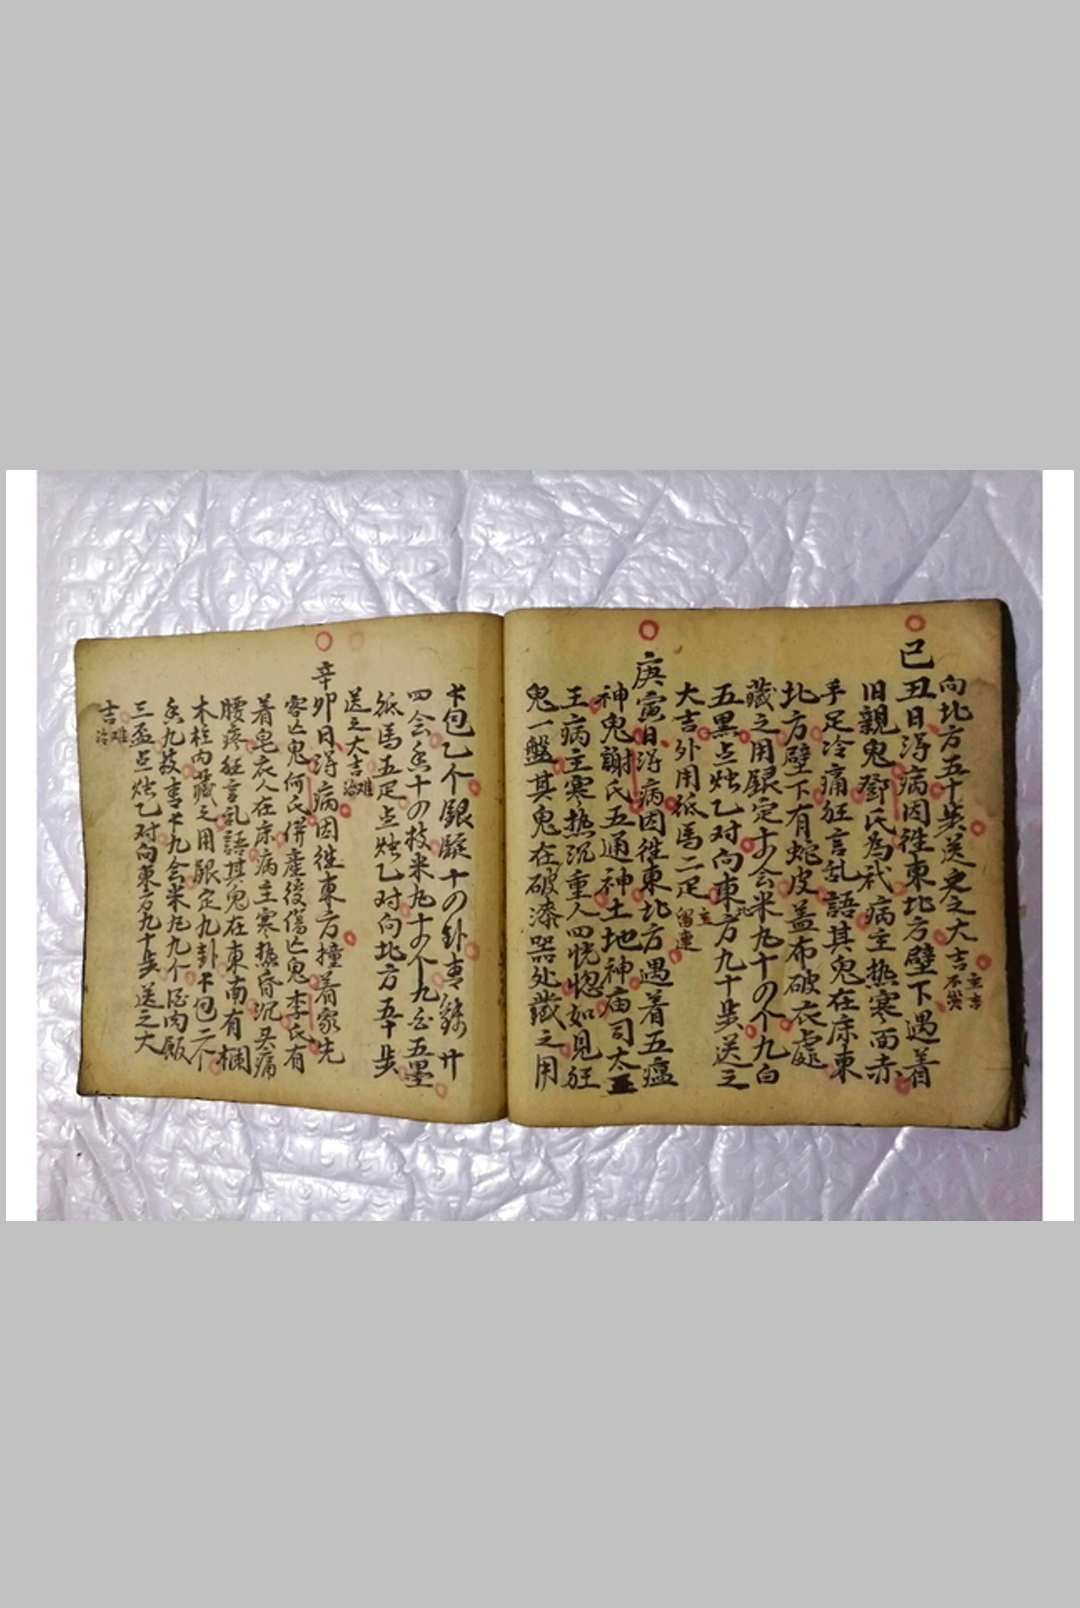 向北方五十步送之大吉
己丑日得病因徃東北方壁下遇着
旧親鬼鄧氏為礼病主热寒面赤
手足冷痛狂言乱語其鬼在床東
北方壁下有蛇皮盖布破衣處
藏之用銀定十个会米九十の个九白
五黑点烛乙对向東方九十步送之
大吉外用紙馬二疋
主留連
庚寅日得病因徃東北方遇着五瘟
神鬼謝氏五通神土地神庙司太
王病主寒热沉重人四恍惚如見狂
鬼一盤其鬼在破漆器处藏之用
包乙个銀錠十の卦
四会香十の枝米九十の个九白五墨
紙馬五疋点烛乙对向北方五十步
送之大吉
难治
辛卯日得病因徃東方撞着家先
客亡鬼何氏併產後傷亡鬼李氏有
着皂衣人在床病主寒热昏沉头痛
腰疼狂言乱語其鬼在東南有欄
木柱内藏之用銀定九卦包二个
香九枝九会米九九个肉飯
三盃点烛乙对向東方九十步送之大
吉
难治